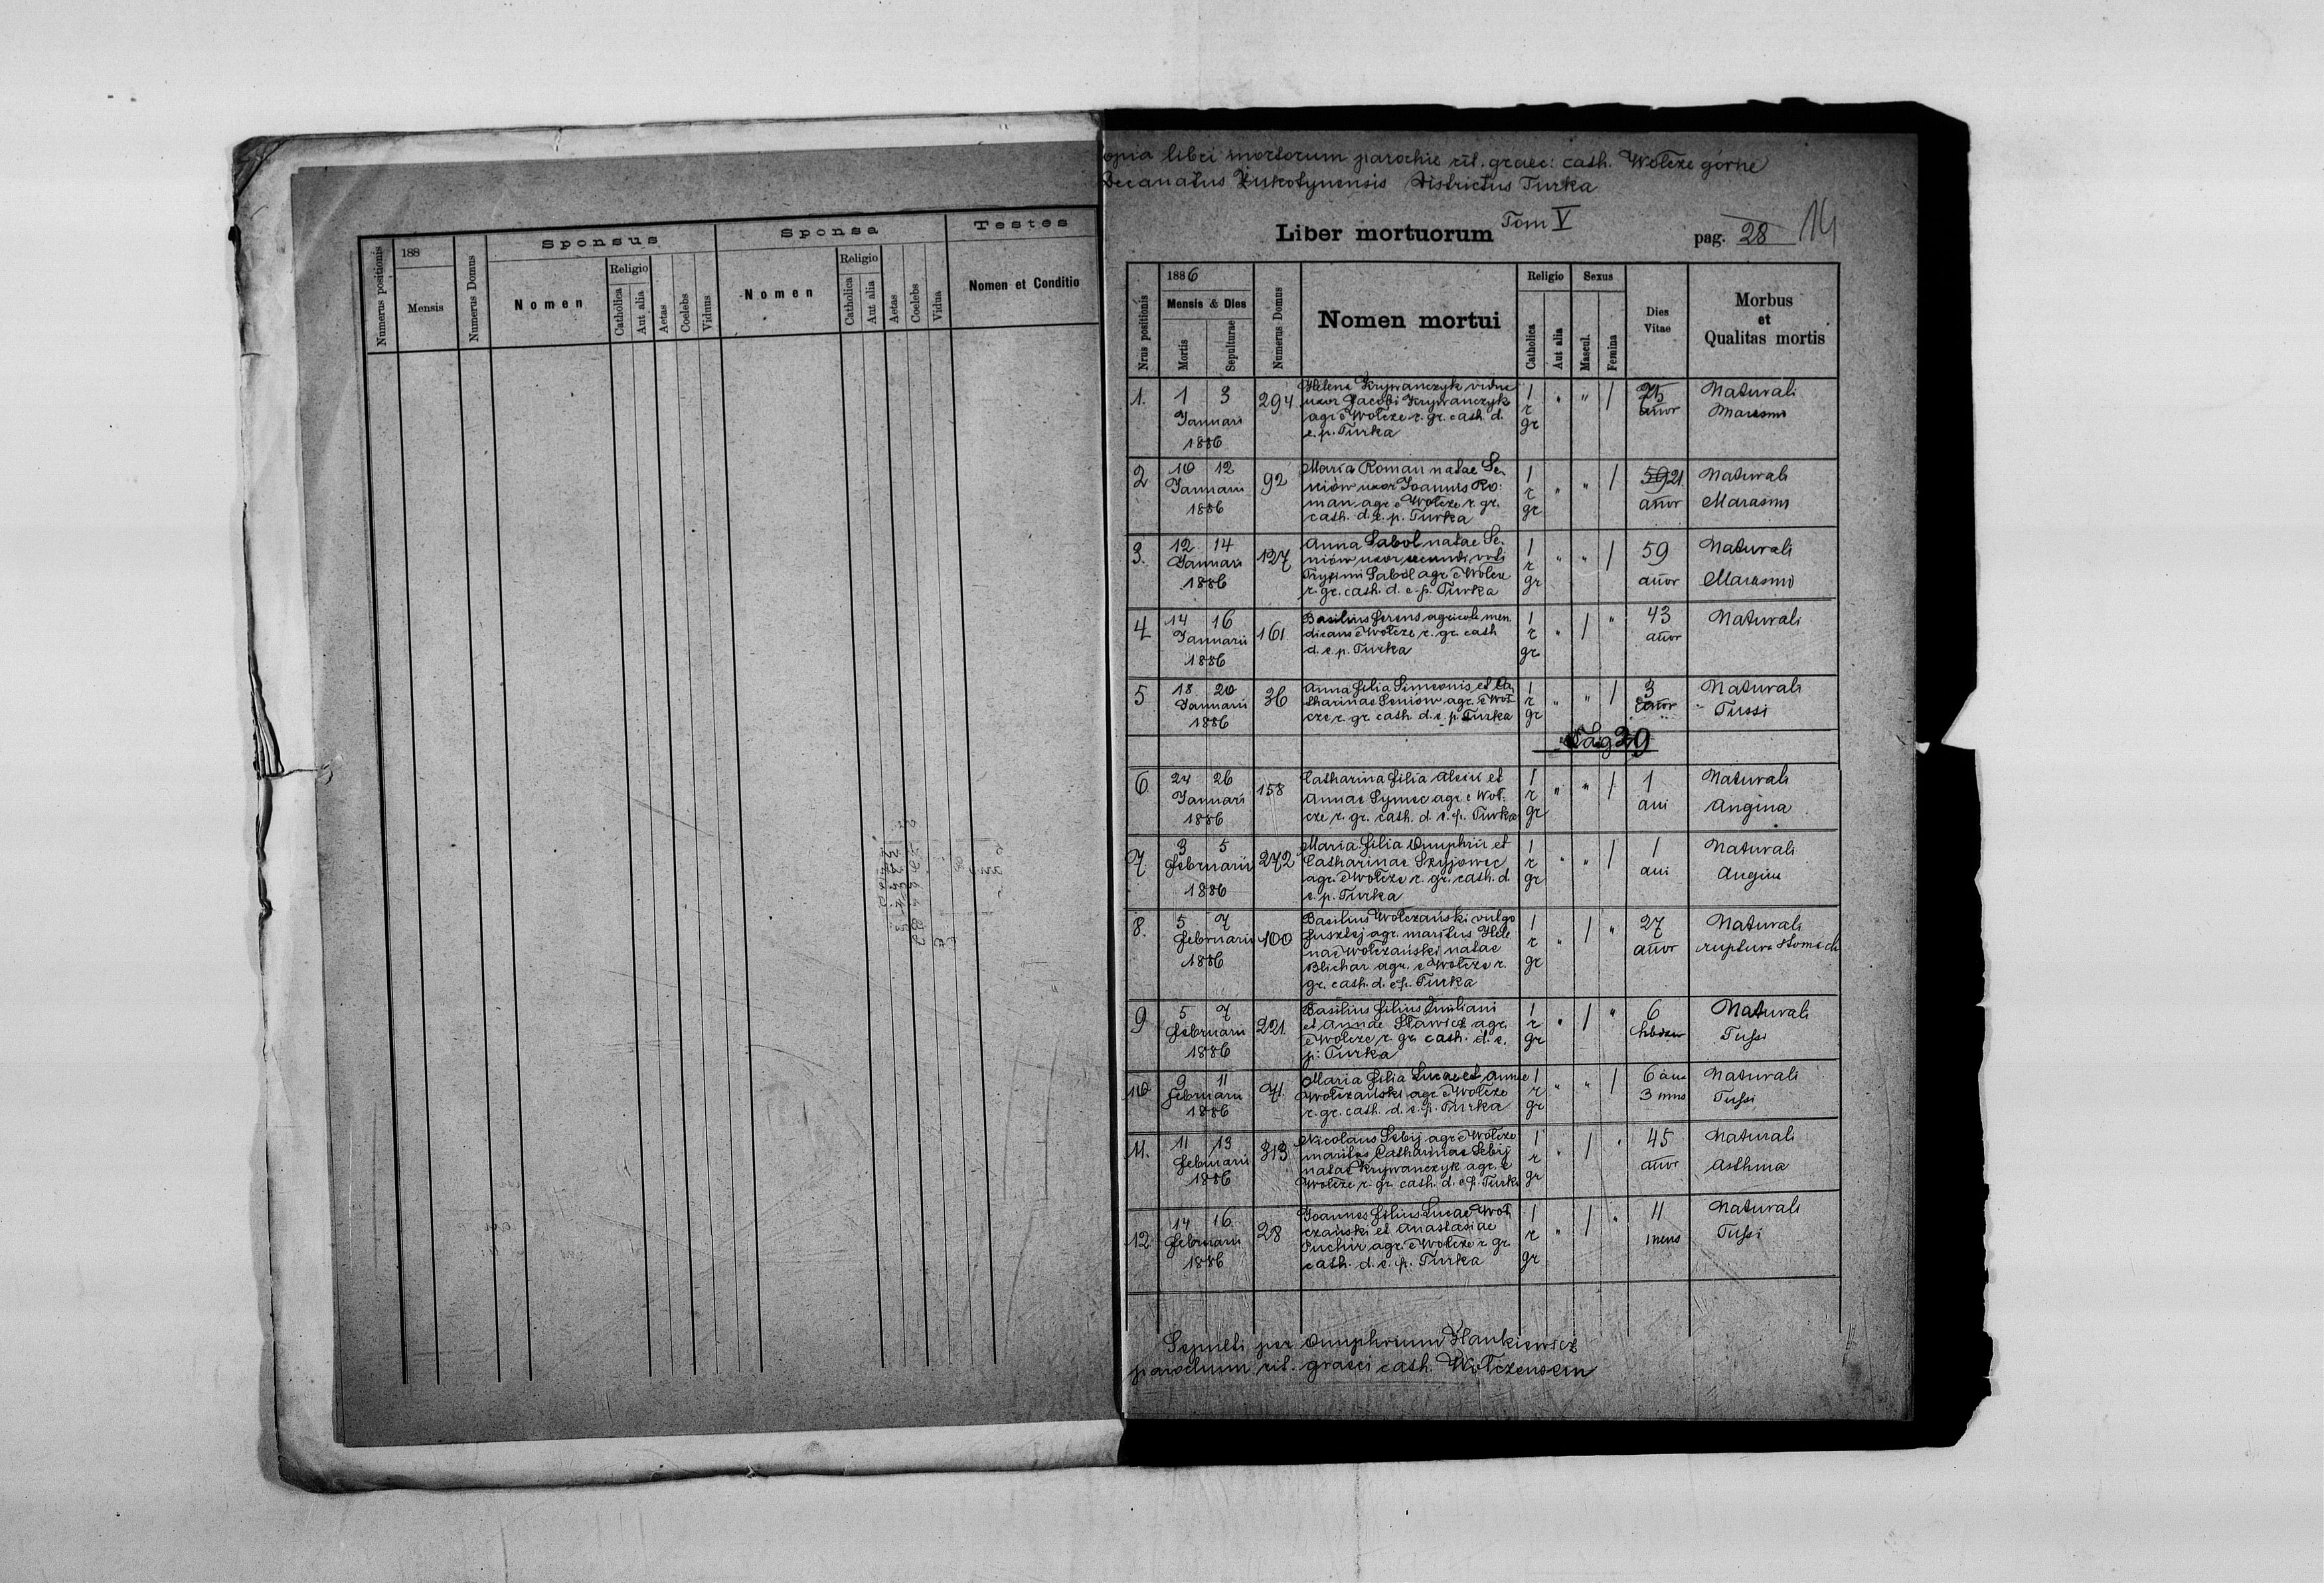 Numerus positionis
188
Mensis
Numerus Domus
Sponsus
Nomen
Religio
Catholica
Aut alia
Aetas
Coelebs
Viduus
Sponsa
Nomen
Religio
Catholica
Aut alia
Aetas
Coelebs
Vidua
Testes
Nomen et Conditio
opia libri mortorum parochie rit. graec: cath. Wołcze górne
Decanatus Żukotynensis Districtus Turka
Liber mortuorum Tom V
pag. 28 14
Nrus positionis
1886
Mensis & Dies
Mortis
Sepulturae
Numerus Domus
Nomen mortui
Religio
Catholica
Aut alia
Sexus
Mascul.
Femina
Dies Vitae
Morbus
et
Qualitas mortis
1. 1 3 Januari 1886 294
Helena Krywanczyk
uxor Jacobi Krywanczyk
agr. e Wołcze r. gr. cath. d.
e. p. Turka
1 r gr " " / 75 añor Naturali Marasmo
2 10 12 Januarii 1886 92
Maria Roman natae Se-
niów uxor Joannis Ro-
man agr. e Wołcze r. gr.
cath. d. e. p. Turka
1 r gr " " / 21 añor Naturali Marasmus
3. 12 14 Januari 1886 127
Anna Sabol natae Se-
niów uxor secundi voti
Sabol agr. e Wołcze
r. gr. cath. d. e. p. Turka
1 r gr " " / 59 añor Naturali Marasmo
4 14 16 Januarii 1886 161
Basilius Ferens agricola men
dicans e Wołcze r. gr. cath
d. e. p. Turka
1 r gr " / " 43 añor Naturali
5 18 20 Januarii 1886 36
Anna filia Simeonis et Ca-
tharinae Seniów agr. e Woł-
cze r. gr. cath. d. e. p. Turka
1 r gr " " / 3 añor Naturali Tussi
Pag 29
6 24 26 Januarii 1886 158
Catharina filia Alexii et
Annae Symec agr. e Woł-
cze r. gr. cath. d. e. p. Turka
1 r gr " " / 1 ani Naturali Angina
7. 3 5 Februarii 1886 272
Maria filia Onuphrii et
Catharinae Skyjowec
agr. e Wołcze r. gr. cath. d.
e. p. Turka
1 r gr " " / 1 ani Naturali Angina
8. 5 7 Februarii 1886 100
Basilius Wołczański vulgo
agr. maritus Hele
nae Wołczański natae
Blichar agr. e Wołcze r.
gr. cath. d. e. p. Turka
1 r gr " / " 27 añor Naturali ruptura stomachi
9 5 7 Februarii 1886 221.
Basilius filius Emiliani
et Annae Sławicz agr.
e Wołcze r. gr. cath. d. e.
p. Turka
1 r gr " / " 6 Naturali Tussi
10 9 11 Februarii 1886 71.
Maria filia Lucae et Annae
Wołczański agr. e Wołcze
r. gr. cath. d. e. p. Turka
1 r gr " " / 6 3 mns Naturali Tussi
11. 11 13 Februarii 1886 313
Nicolaus Sebij agr. e Wołcze
maritus Catharinae Sebij
natae Krywanczyk agr. e
Wołcze r. gr. cath. d. e. p. Turka
1 r gr " / " 45 añor Naturali Asthma
12. 14 16 Februarii 1886 28
Joannes filius Lucae Woł
czański et Anastasiae
Puchir agr. e Wołcze r. gr.
cath. d. e. p. Turka
1 r gr " / " 11 mens Naturali Tussi
Sepulti per Onuphrium Hankiewicz
parochum rit. graeci cath. Wołczensem